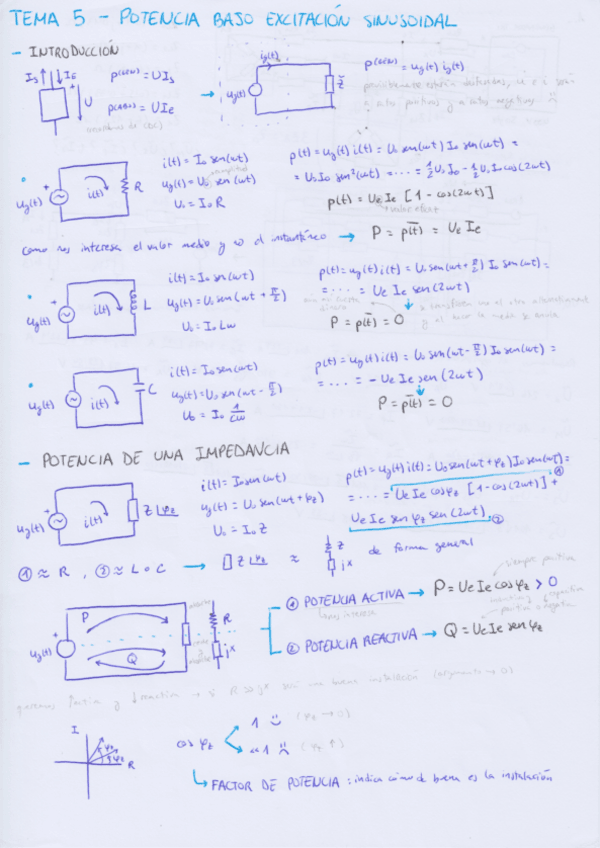 TEMA 5 - POTENCIA BAJO EXCITACIÓN SINUSOIDAL
- INTRODUCCIÓN
Is ↑ ↓ IE
U
p(GEN) = U Is
p(ABS) = U IE
→
ug(t) ig(t) Z̄
p(GEN) = ug(t) ig(t)
ug(t) i(t) R
i(t) = Io sen(ωt)
ug(t) = Uo sen(ωt)
Uo = Io R
p(t) = ug(t) i(t) = Uo sen(ωt) Io sen(ωt) =
= Uo Io sen²(ωt) = ... = ½ Uo Io - ½ Uo Io cos(2ωt)
p(t) = Ue Ie [1 - cos(2ωt)]
como nos interesa el valor medio y no el instantáneo → P = p̄(t) = Ue Ie
ug(t) i(t) L
i(t) = Io sen(ωt)
ug(t) = Uo sen(ωt + π/2)
Uo = Io Lω
p(t) = ug(t) i(t) = Uo sen(ωt + π/2) Io sen(ωt) =
= ... = Ue Ie sen(2ωt)
P = p̄(t) = 0
ug(t) i(t) C
i(t) = Io sen(ωt)
ug(t) = Uo sen(ωt - π/2)
Uo = Io 1/Cω
p(t) = ug(t) i(t) = Uo sen(ωt - π/2) Io sen(ωt) =
= ... = - Ue Ie sen(2ωt)
P = p̄(t) = 0
- POTENCIA DE UNA IMPEDANCIA
ug(t) i(t) Z∠φz
i(t) = Io sen(ωt)
ug(t) = Uo sen(ωt + φz)
Uo = Io Z
p(t) = ug(t) i(t) = Uo sen(ωt + φz) Io sen(ωt) =
= ... = Ue Ie cos φz [1 - cos(2ωt)] + ①
Ue Ie sen φz sen(2ωt) ②
① ≈ R , ② ≈ L o C → Z∠φz ≈ jX de forma general
ug(t) P Q R jX
① POTENCIA ACTIVA → P = Ue Ie cos φz > 0
siempre positiva
nos interesa
② POTENCIA REACTIVA → Q = Ue Ie sen φz
positiva o negativa
I R φz
cos φz
1 ☺ (φz → 0)
≪ 1 ☹ (φz ↑)
↳ FACTOR DE POTENCIA : indica cómo de buena es la instalación